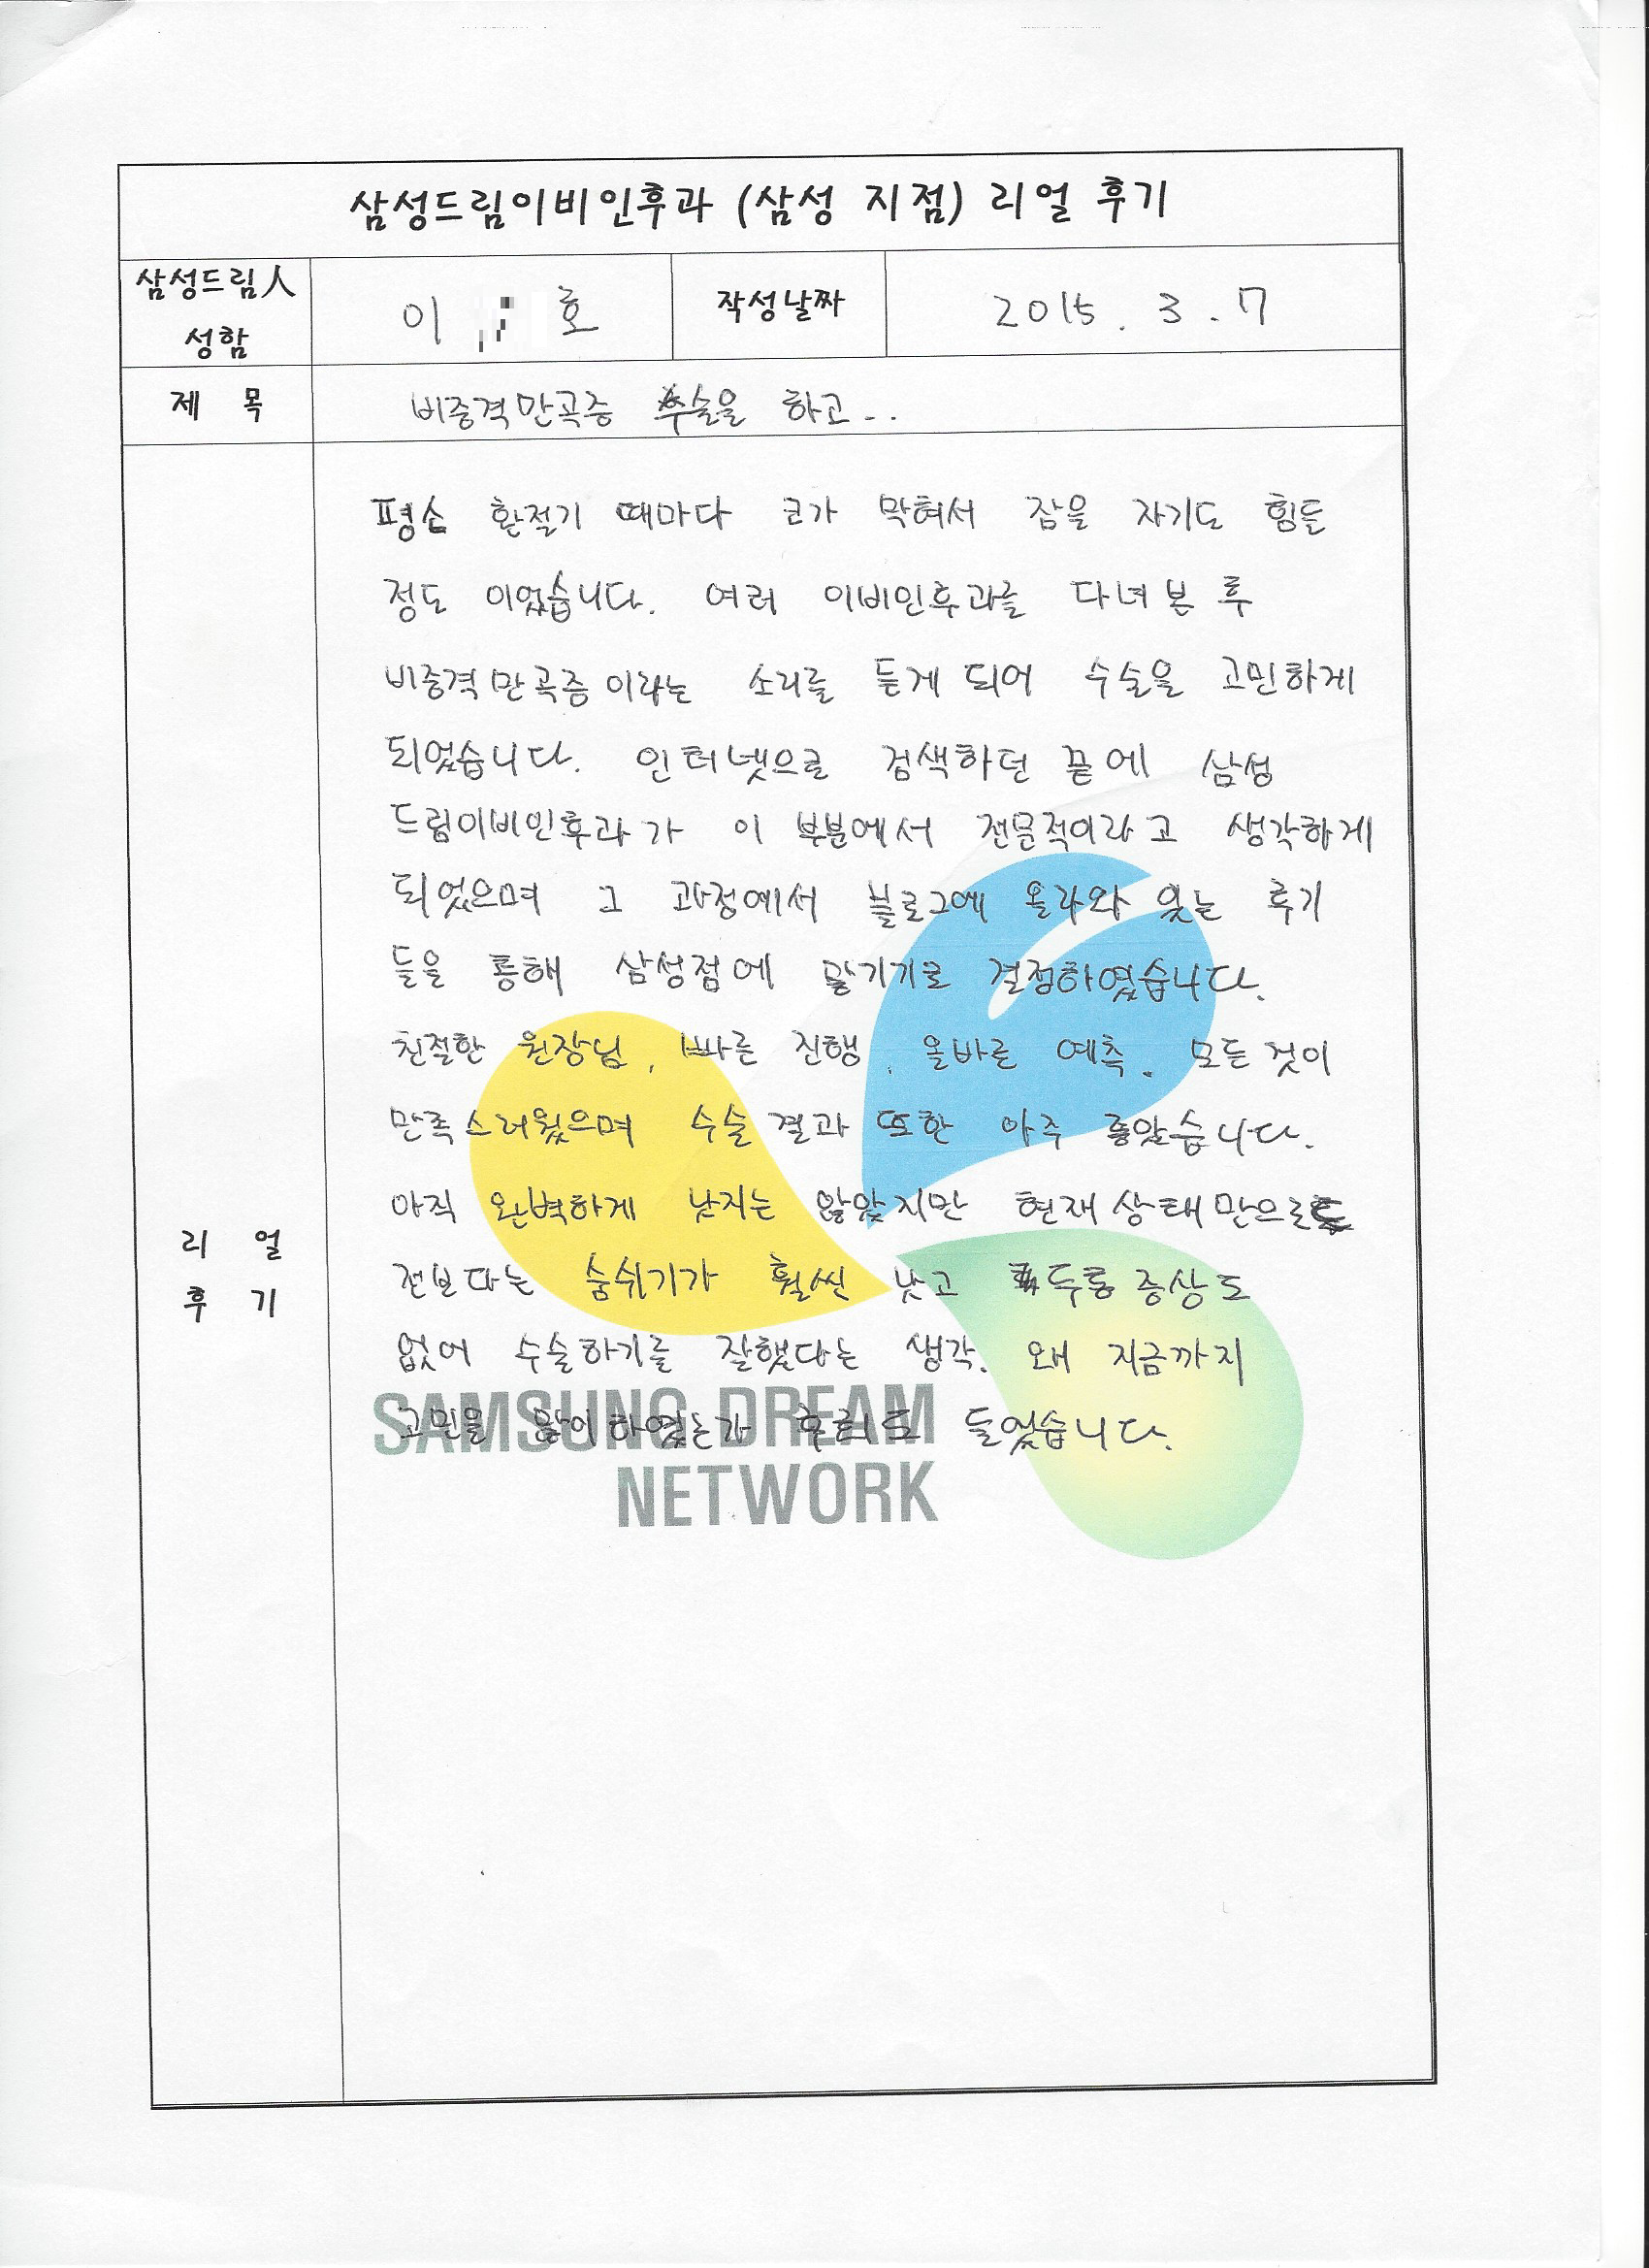 삼성드림이비인후과 (삼성 지점) 리얼 후기
삼성드림人 성함
이 호
작성날짜
2015. 3. 7
제 목
비중격만곡증 수술을 하고..
리 얼 후 기
평소 환절기 때마다 코가 막혀서 잠을 자기도 힘든
정도 이었습니다. 여러 이비인후과를 다녀본 후
비중격만곡증이라는 소리를 듣게 되어 수술을 고민하게
되었습니다. 인터넷으로 검색하던 끝에 삼성
드림이비인후과가 이 부분에서 전문적이라고 생각하게
되었으며 그 과정에서 블로그에 올라와 있는 후기
들을 통해 삼성점에 맡기기로 결정하였습니다.
친절한 원장님, 빠른 진행, 올바른 예측. 모든 것이
만족스러웠으며 수술 결과 또한 아주 좋았습니다.
아직 완벽하게 낫지는 않았지만 현재 상태만으로도
전보다는 숨쉬기가 훨씬 낫고 두통 증상도
없어 수술하기를 잘했다는 생각. 왜 지금까지
고민을 많이 하였는가 후회도 들었습니다.
SAMSUNG DREAM
NETWORK